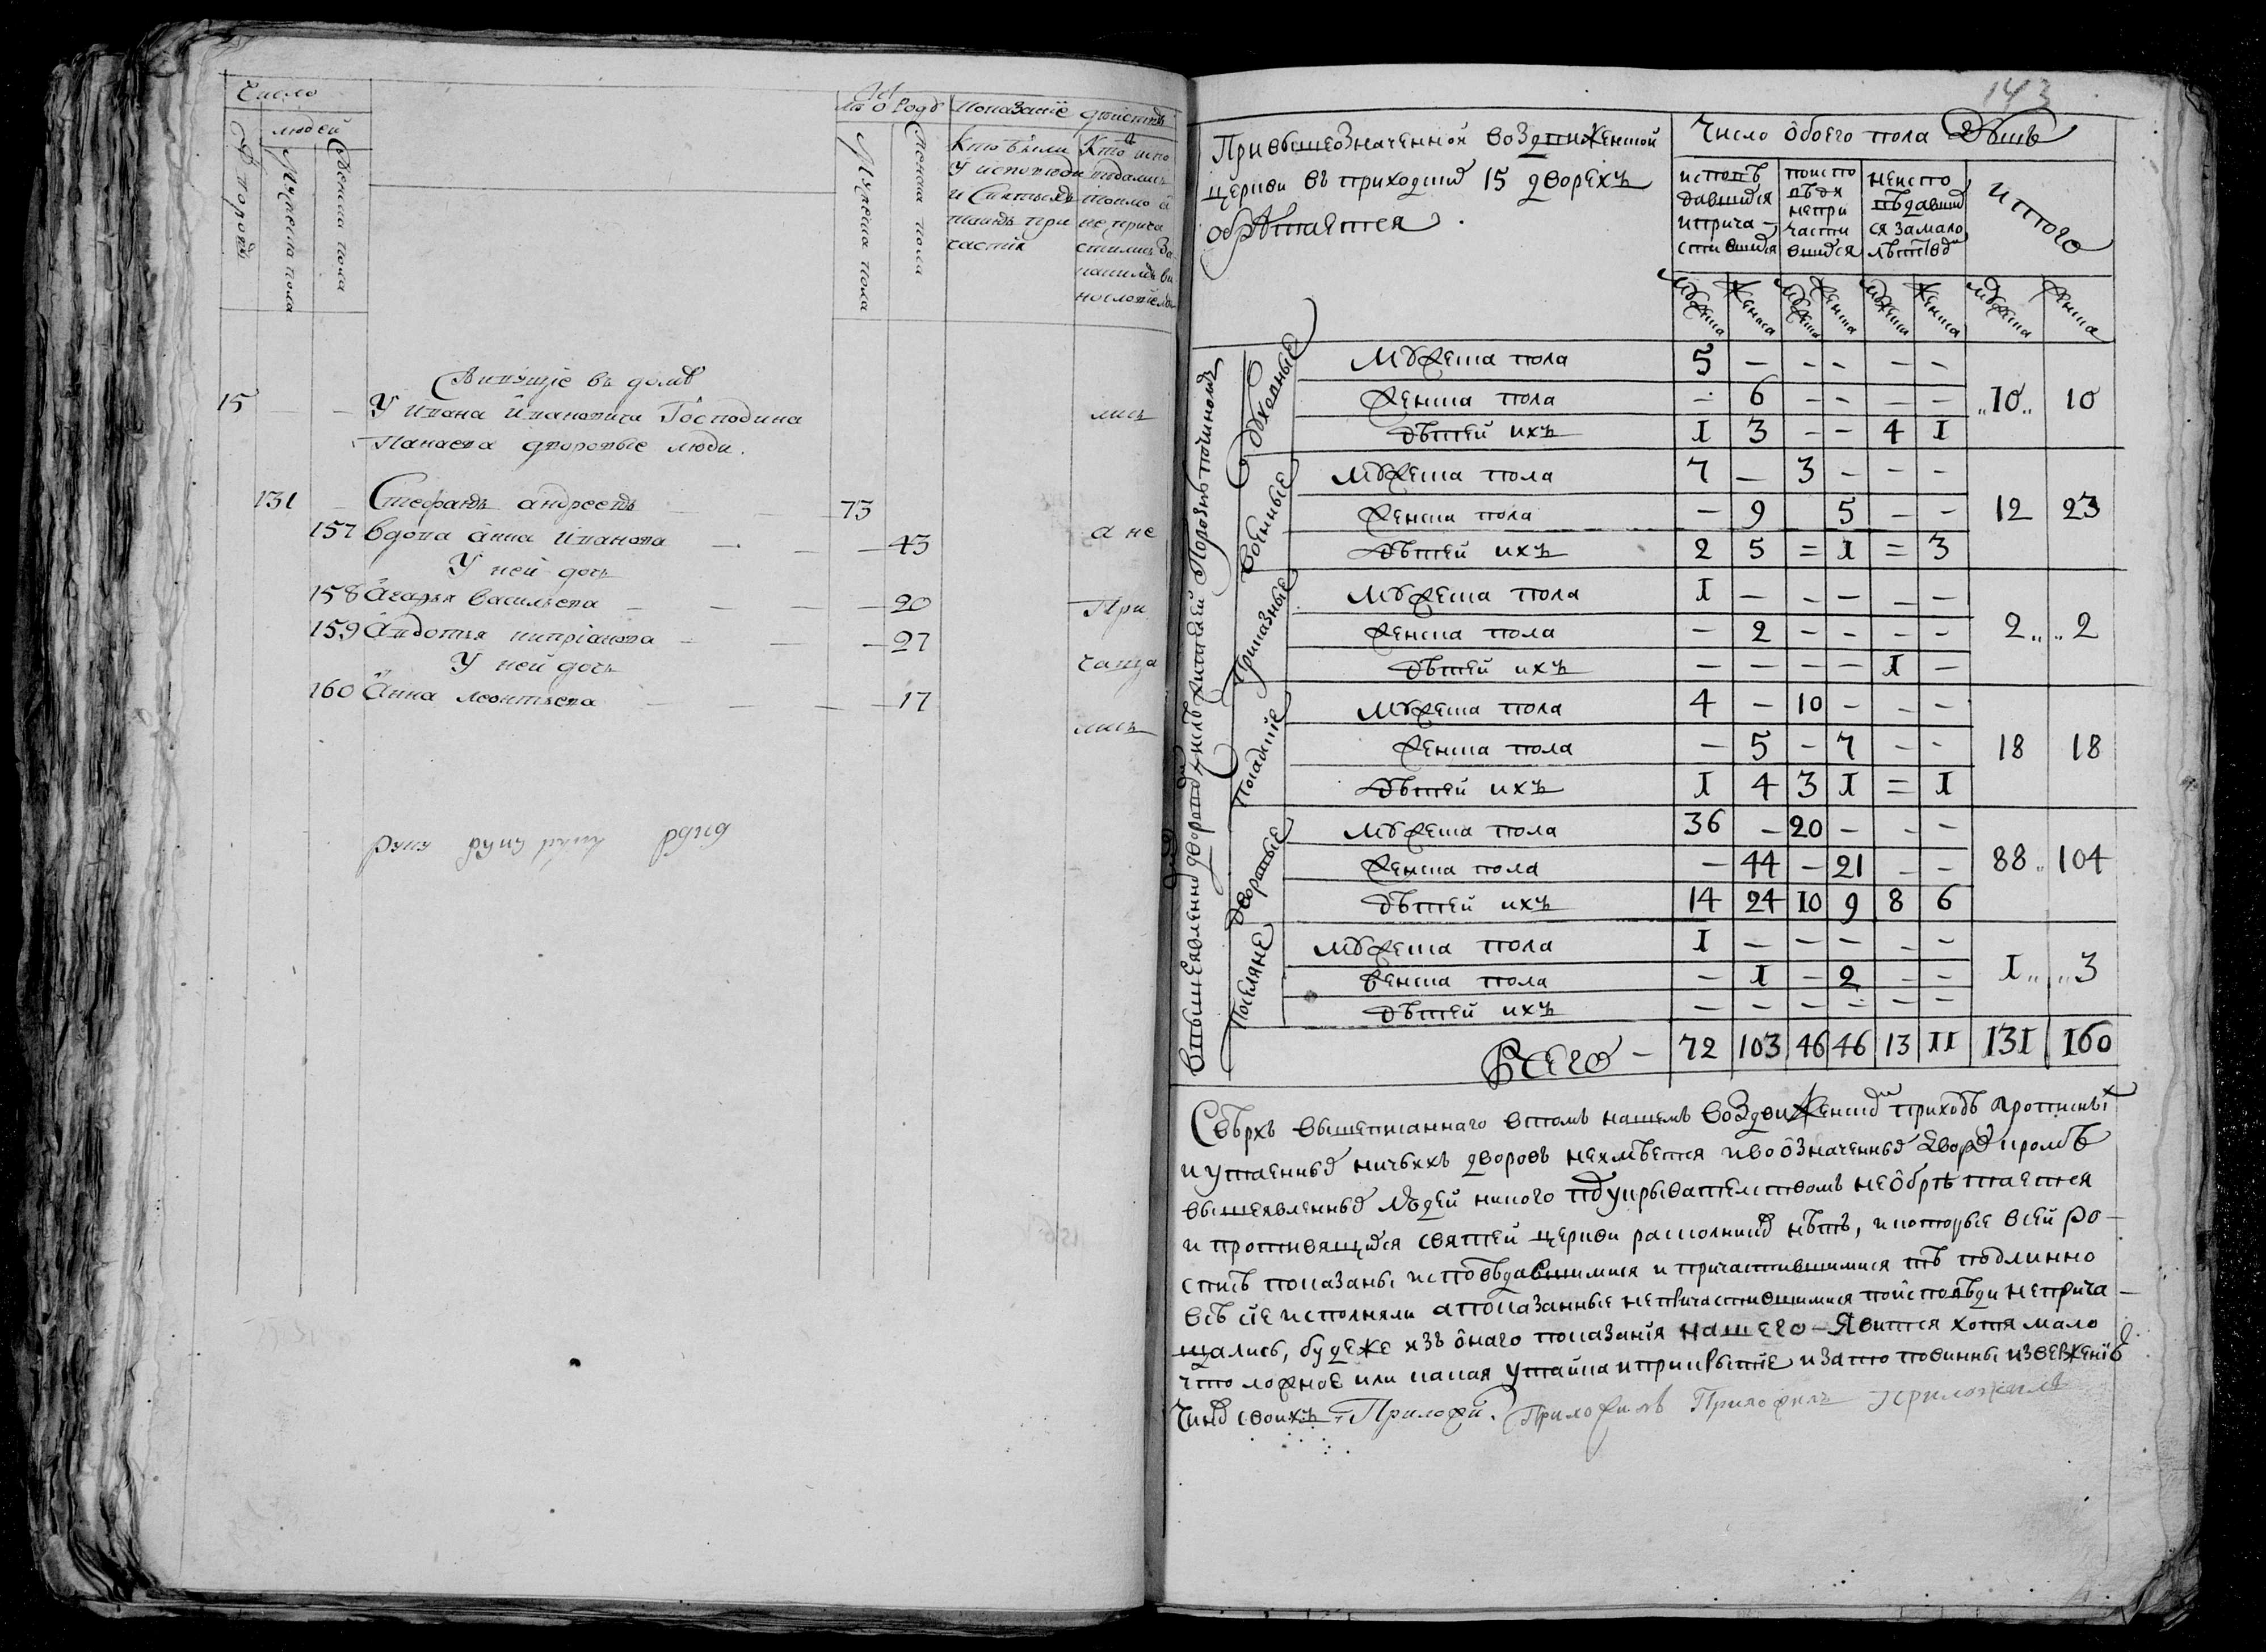 Число
людей
Дворовъ
Мужеска пола
Женска пола
Лѣта от роду
Мужеска пола
Женска пола
Показанїе дѣйства
Кто были у исповѣди и Святыхъ таинъ при частїя
Кто исповѣдались токмо а не причастились
Живущїе въ домѣ
15 — — У ивана ивановича Господина
Панаева дворовые люди.
131 Стефанъ андреевъ — — 73
157 вдова анна иванова — — — 43
У ней дочь
158 агафья васильева — — — 20
159 авдотья кипрїанова — — — 27
У ней дочь
160 анна леонтьева — — — 17
лись
а не
При
чаща
лись
143
При вышеозначенной воздвиженской
церкви въ приходскихъ 15 дворехъ
обрѣтается.
Число обоего пола душъ
исповѣдавшихся и причастившихся
по исповѣди непричастившихся
неисповѣдавшихся за малолѣтствомъ
итого
мужеска женска мужеска женска мужеска женска мужеска женска
в вышеявленныхъ дворахъ
Духовные
Мужеска пола 5 — — — — —
Женска пола — 6 — — — —
дѣтей ихъ 1 3 — — 4 1
10 10
Военные
Мужеска пола 7 — 3 — — —
Женска пола — 9 5 — —
дѣтей ихъ 2 5 = 1 = 3
12 23
Приказные
Мужеска пола 1 — — — — —
Женска пола — 2 — — — —
дѣтей ихъ — — — — 1 —
2 2
Посадскїе
Мужеска пола 4 — 10 — — —
Женска пола — 5 — 7 — —
дѣтей ихъ 1 4 3 1 = 1
18 18
Дворовые
Мужеска пола 36 — 20 — — —
Женска пола — 44 — 21 — —
дѣтей ихъ 14 24 10 9 8 6
88 104
Поселяне
Мужеска пола 1 — — — — —
Женска пола — 1 — 2 — —
дѣтей ихъ — — — — — —
1 3
Всего — 72 103 46 46 13 11 131 160
Свѣрхъ вышеписаннаго втомъ нашемъ воздвиженскомъ приходѣ прописныхъ
и утаенныхъ ничьихъ дворовъ неимѣется и во означенныхъ дворахъ кромѣ
вышеявленныхъ людей никого подукрывательствомъ необрѣтается
и противящихся святей церкви раскольниковъ нѣтъ, и которые всей ро-
списѣ показаны исповѣдавшимися и причастившимися тѣ подлинно
всѣ сїе исполняли а показанные непричастившимися поисповѣди неприча-
щались, будеже изъ онаго показанїя нашего Явится хотя мало
что ложное или какая утайка и прикрытїе и за то повинны изверженїю
Чиновъ своихъ. Приложи. Приложилъ Приложилъ приложилъ